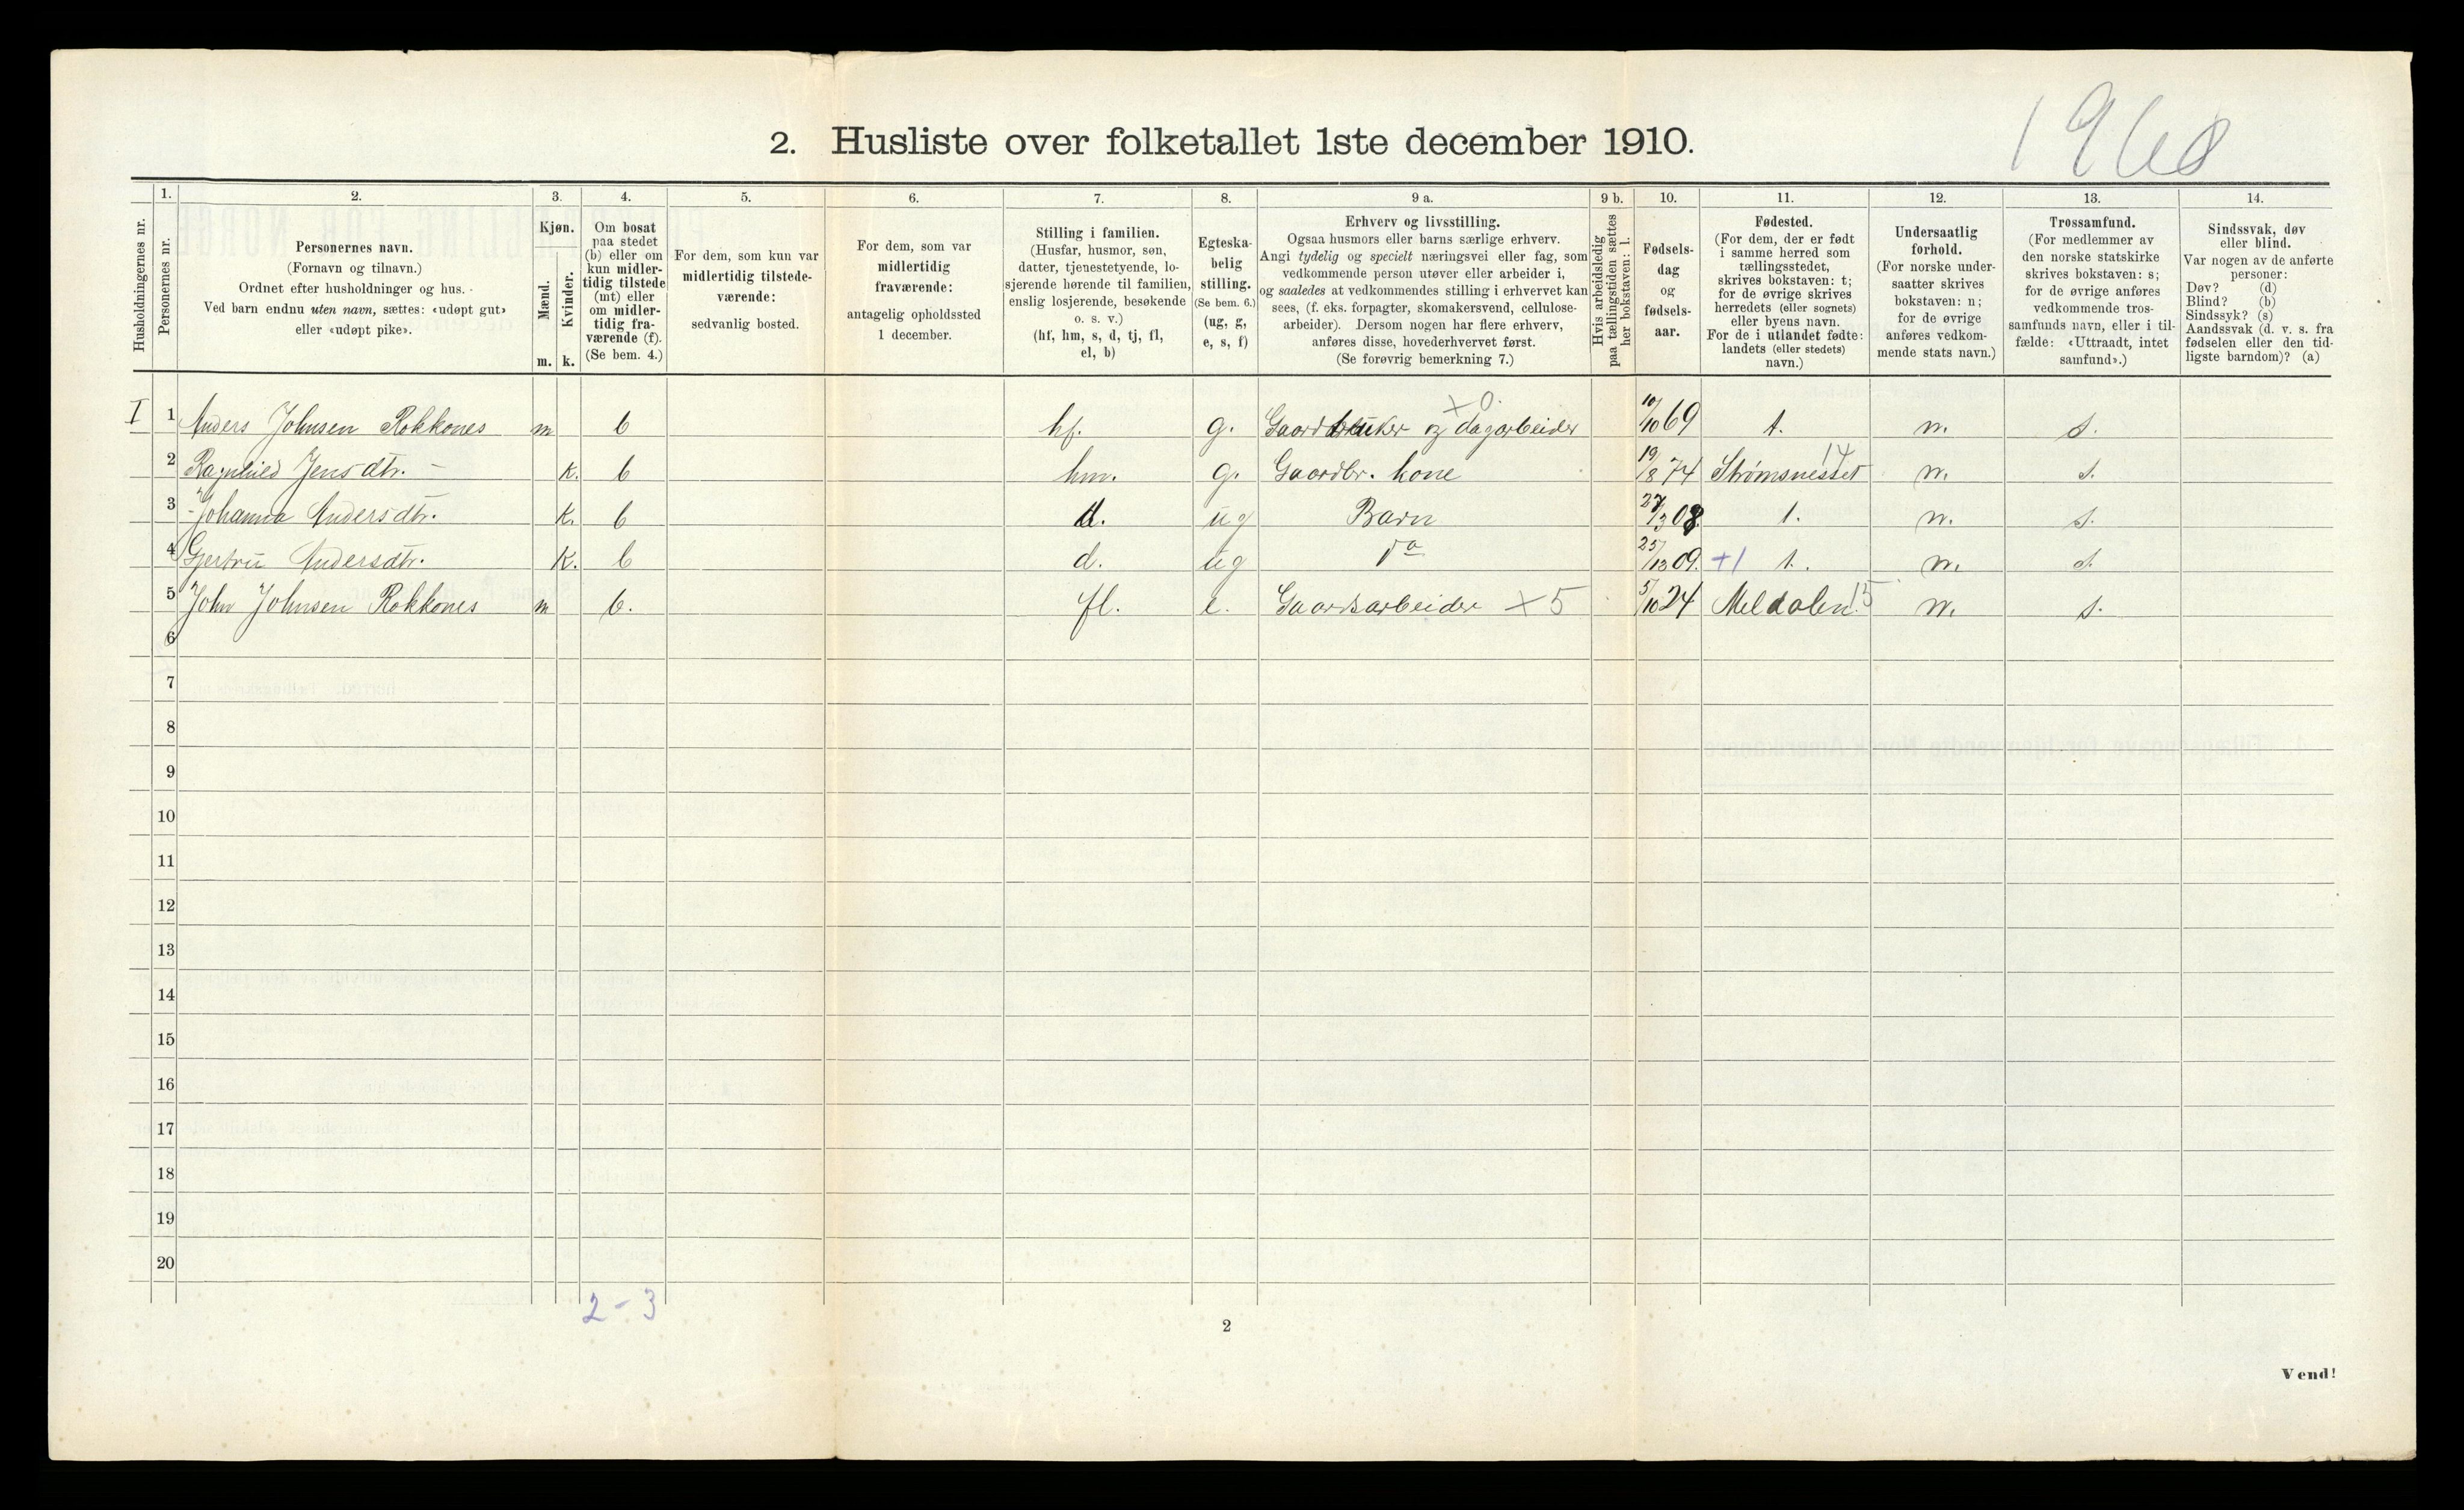 1960
2. Husliste over folketallet 1ste december 1910.
Husholdningernes nr.
1.
Personernes nr.
2.
Personernes navn.
(Fornavn og tilnavn.)
Ordnet efter husholdninger og hus.
Ved barn endnu uten navn, sættes: «udøpt gut»
eller «udøpt pike».
3.
Kjøn.
Mænd.
Kvinder.
m. k.
4.
Om bosat
paa stedet
(b) eller om
kun midler-
tidig tilstede
(mt) eller
om midler-
tidig fra-
værende (f).
(Se bem. 4.)
5.
For dem, som kun var
midlertidig tilstede-
værende:
sedvanlig bosted.
6.
For dem, som var
midlertidig
fraværende:
antagelig opholdssted
1 december.
7.
Stilling i familien.
(Husfar, husmor, søn,
datter, tjenestetyende, lo-
sjerende hørende til familien,
enslig losjerende, besøkende
o. s. v.)
(hf, hm, s, d, tj, fl,
el, b)
8.
Egteska-
belig
stilling.
(Se bem. 6.)
(ug, g,
e, s, f)
9 a.
Erhverv og livsstilling.
Ogsaa husmors eller barns særlige erhverv.
Angi tydelig og specielt næringsvei eller fag, som
vedkommende person utøver eller arbeider i,
og saaledes at vedkommendes stilling i erhvervet kan
sees, (f. eks. forpagter, skomakersvend, cellulose-
arbeider). Dersom nogen har flere erhverv,
anføres disse, hovederhvervet først.
(Se forøvrig bemerkning 7.)
9 b.
Hvis arbeidsledig
paa tællingstiden sættes
her bokstaven: l.
10.
Fødsels-
dag
og
fødsels-
aar.
11.
Fødested.
(For dem, der er født
i samme herred som
tællingsstedet,
skrives bokstaven: t;
for de øvrige skrives
herredets (eller sognets)
eller byens navn.
For de i utlandet fødte:
landets (eller stedets)
navn.)
12.
Undersaatlig
forhold.
(For norske under-
saatter skrives
bokstaven: n;
for de øvrige
anføres vedkom-
mende stats navn.)
13.
Trossamfund.
(For medlemmer av
den norske statskirke
skrives bokstaven: s;
for de øvrige anføres
vedkommende tros-
samfunds navn, eller i til-
fælde: «Uttraadt, intet
samfund».)
14.
Sindssvak, døv
eller blind.
Var nogen av de anførte
personer:
Døv? (d)
Blind? (b)
Sindssyk? (s)
Aandssvak (d. v. s. fra
fødselen eller den tid-
ligste barndom)? (a)
I 1 Anders Johnsen Rokkones m b hf. g. Gaardbruker og dagarbeider x 0. 10/10 69 t. n. s.
2 Ragnhild Jensdtr. – k. b hm. g. Gaardbr. kone 19/8 74 Strømsnesset 14 n. s.
3 Johanna Andersdtr. k. b d. ug Barn 27/3 08 t. n. s.
4 Gjertru Andersdtr. k. b d. ug do 25/12 09. +1 t. n. s.
5 John Johnsen Rokkones m b. fl. e. Gaardsarbeider x 5 5/10 24 Meldalen 15 n. s.
6
7
8
9
10
11
12
13
14
15
16
17
18
19
20
2 - 3
2
Vend!